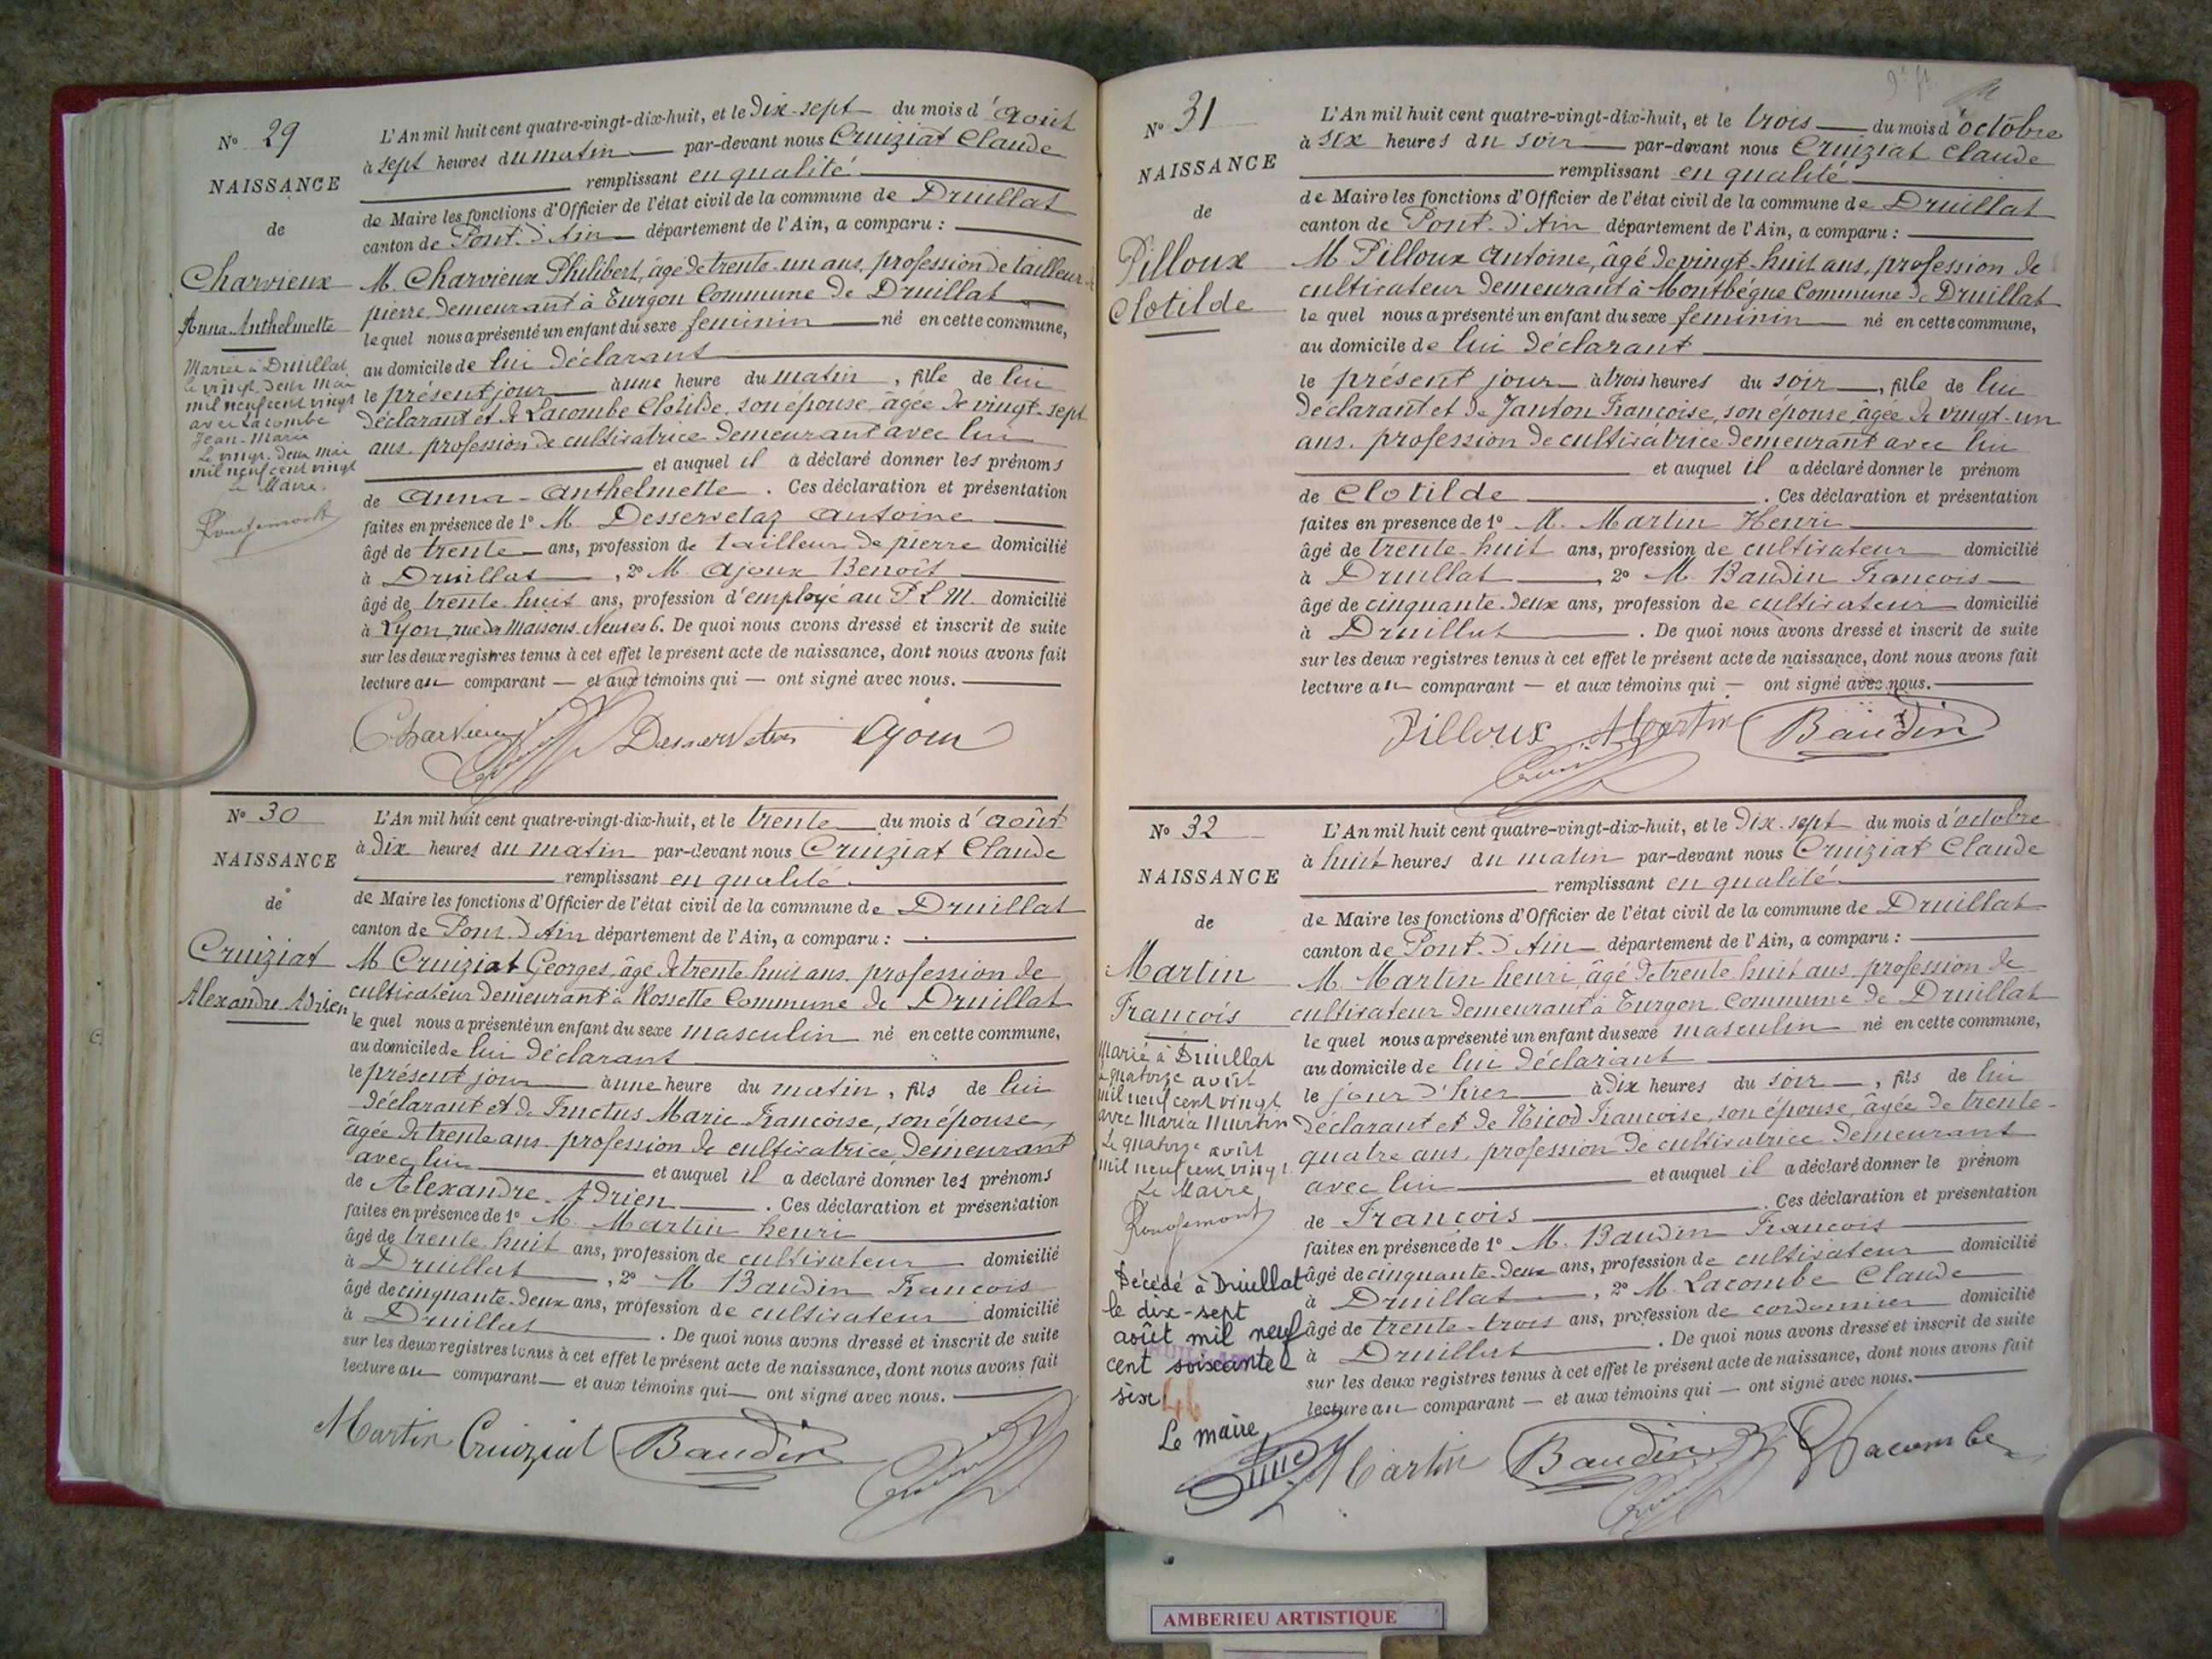 Nº 29
NAISSANCE
de
Charvieux
Anna Anthelmette
Mariée à Druillat
le vingt deux mai
mil neuf cent vingt
avec Lacombe
Jean-Marie
Le vingt deux mai
mil neuf cent vingt
Le Maire
Rougemont
L'An mil huit cent quatre-vingt-dix-huit, et le dix-sept du mois d'août
à sept heures du matin par-devant nous Cruiziat Claude
remplissant en qualité
de Maire les fonctions d'Officier de l'état civil de la commune de Druillat
canton de Pont-d'Ain département de l'Ain, a comparu :
M. Charvieux Philibert, âgé de trente-un ans, profession de tailleur de
pierre demeurant à Turgon Commune de Druillat
lequel nous a présenté un enfant du sexe feminin né en cette commune,
au domicile de lui déclarant
le présent jour à une heure du matin, fille de lui
déclarant et de Lacombe Clotilde, son épouse, âgée de vingt-sept
ans, profession de cultivatrice demeurant avec lui
et auquel il a déclaré donner les prénoms
de Anna-Anthelmette. Ces déclaration et présentation
faites en présence de 1º M. Desservetaz Antoine
âgé de trente ans, profession de tailleur de pierre domicilié
à Druillat, 2º M. Ajoux Benoît
âgé de trente huit ans, profession d'employé au P. L. M. domicilié
à Lyon, rue des Maisons Neuves 6. De quoi nous avons dressé et inscrit de suite
sur les deux registres tenus à cet effet le présent acte de naissance, dont nous avons fait
lecture au comparant — et aux témoins qui — ont signé avec nous.
Charvieux Desservetaz Ajoux
Nº 30
NAISSANCE
de
Cruiziat
Alexandre Adrien
L'An mil huit cent quatre-vingt-dix-huit, et le trente du mois d'août
à dix heures du matin par-devant nous Cruiziat Claude
remplissant en qualité
de Maire les fonctions d'Officier de l'état civil de la commune de Druillat
canton de Pont-d'Ain département de l'Ain, a comparu :
M. Cruiziat Georges, âgé de trente huit ans, profession de
cultivateur demeurant à Rossette Commune de Druillat
le quel nous a présenté un enfant du sexe masculin né en cette commune,
au domicile de lui déclarant
le présent jour à une heure du matin, fils de lui
déclarant et de Fructus Marie Françoise, son épouse,
âgée de trente ans, profession de cultivatrice, demeurant
avec lui et auquel il a déclaré donner les prénoms
de Alexandre Adrien. Ces déclaration et présentation
faites en présence de 1º M. Martin henri
âgé de trente huit ans, profession de cultivateur domicilié
à Druillat, 2º M. Baudin François
âgé de cinquante-deux ans, profession de cultivateur domicilié
à Druillat. De quoi nous avons dressé et inscrit de suite
sur les deux registres tenus à cet effet le présent acte de naissance, dont nous avons fait
lecture au comparant — et aux témoins qui — ont signé avec nous.
Martin Cruiziat Baudin
Nº 31
NAISSANCE
de
Pilloux
Clotilde
L'An mil huit cent quatre-vingt-dix-huit, et le trois du mois d'octobre
à six heures du soir par-devant nous Cruiziat Claude
remplissant en qualité
de Maire les fonctions d'Officier de l'état civil de la commune de Druillat
canton de Pont-d'Ain département de l'Ain, a comparu :
M. Pilloux Antoine, âgé de vingt-huit ans, profession de
cultivateur demeurant à Montbègue Commune de Druillat
le quel nous a présenté un enfant du sexe feminin né en cette commune,
au domicile de lui déclarant
le présent jour à trois heures du soir, fille de lui
déclarant et de Janton Françoise, son épouse, âgée de vingt-un
ans, profession de cultivatrice demeurant avec lui
et auquel il a déclaré donner le prénom
de Clotilde. Ces déclaration et présentation
faites en presence de 1º M. Martin Henri
âgé de trente-huit ans, profession de cultivateur domicilié
à Druillat, 2º M. Baudin François
âgé de cinquante-deux ans, profession de cultivateur domicilié
à Druillat. De quoi nous avons dressé et inscrit de suite
sur les deux registres tenus à cet effet le présent acte de naissance, dont nous avons fait
lecture au comparant — et aux témoins qui — ont signé avec nous.
Pilloux Martin Baudin
Nº 32
NAISSANCE
de
Martin
François
Marié à Druillat
le quatorze août
mil neuf cent vingt
avec Maria Murtin
Le quatorze août
mil neuf cent vingt.
Le Maire
Rougemont
Décédé à Druillat
le dix-sept
août mil neuf
cent soixante
six
46
Le maire
L'An mil huit cent quatre-vingt-dix-huit, et le dix-sept du mois d'octobre
à huit heures du matin par-devant nous Cruiziat Claude
remplissant en qualité
de Maire les fonctions d'Officier de l'état civil de la commune de Druillat
canton de Pont-d'Ain département de l'Ain, a comparu :
M. Martin henri, âgé de trente huit ans, profession de
cultivateur demeurant à Turgon Commune de Druillat
le quel nous a présenté un enfant du sexe masculin né en cette commune,
au domicile de lui déclarant
le jour d'hier à dix heures du soir, fils de lui
déclarant et de Nicod Françoise, son épouse, âgée de trente-
quatre ans, profession de cultivatrice demeurant
avec lui et auquel il a déclaré donner le prénom
de François. Ces déclaration et présentation
faites en présence de 1º M. Baudin François
âgé de cinquante-deux ans, profession de cultivateur domicilié
à Druillat, 2º M. Lacombe Claude
âgé de trente-trois ans, profession de cordonnier domicilié
à Druillat. De quoi nous avons dressé et inscrit de suite
sur les deux registres tenus à cet effet le présent acte de naissance, dont nous avons fait
lecture au comparant — et aux témoins qui — ont signé avec nous.
Martin Baudin Lacombe
AMBERIEU ARTISTIQUE